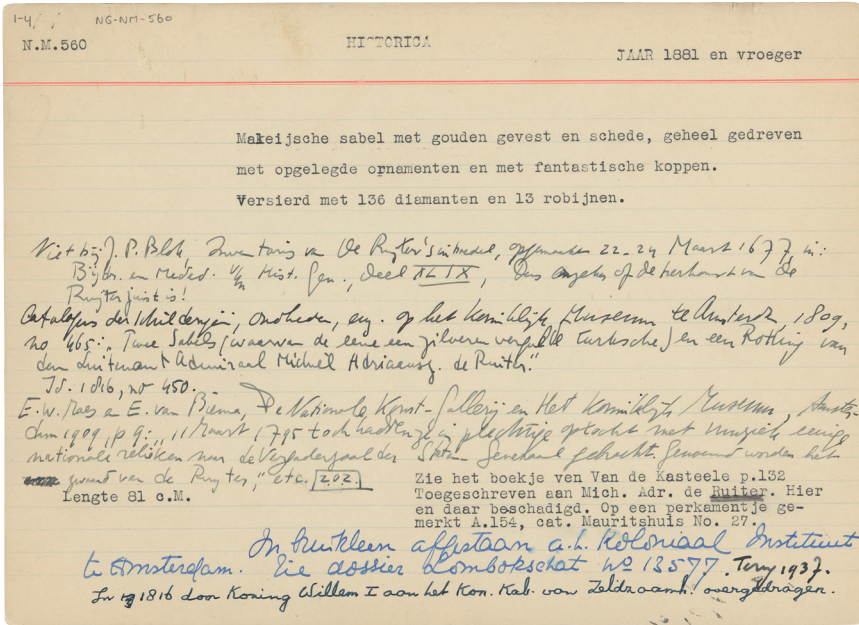 1-4, NG-NM-560
N.M.560 HISTORICA
JAAR 1881 en vroeger
Makeijsche sabel met gouden gevest en schede, geheel gedreven
met opgelegde ornamenten en met fantastische koppen.
Versierd met 136 diamanten en 13 robijnen.
Niet bij J. P. Blok, Inventaris van De Ruyter's inboedel, opgemaakt 22-24 Maart 1677 in:
Bijdr. en Meded. v/h Hist. Gen., deel XLIX, of de herkomst van de
Ruyter juist is!
Catalogus der schilderijen, oudheden, enz. op het Koninklijk Museum te Amsterdam, 1809,
no 465: "Twee Sabels (waarvan de eene een zilveren vergulde turksche) en een Rotting van
den Luitenant Admiraal Michiel Adriaansz. de Ruiter."
Id. 1816, no 450.
E. W. Moes en E. van Biema, De Nationale Konst-Gallerij en Het Koninklijk Museum, Amster-
dam 1909, p 9: "11 Maart 1795 toch hadden in plechtige optocht met muziek eenige
nationale relieken naar de Vergaderzaal der Staten-Generaal gebracht. Genoemd worden het
zwaard van de Ruyter," etc. 202.
Zie het boekje ven Van de Kasteele p.132
Lengte 81 c.M. Toegeschreven aan Mich. Adr. de Ruiter. Hier
en daar beschadigd. Op een perkamentje ge-
merkt A.154, cat. Mauritshuis No. 27.
In bruikleen afgestaan a.h. Koloniaal Instituut
te Amsterdam. Zie dossier Lombokschat No 13577. Terug 1937.
In 1816 door Koning Willem I aan het Kon. Kab. van Zeldzaamh. overgedragen.